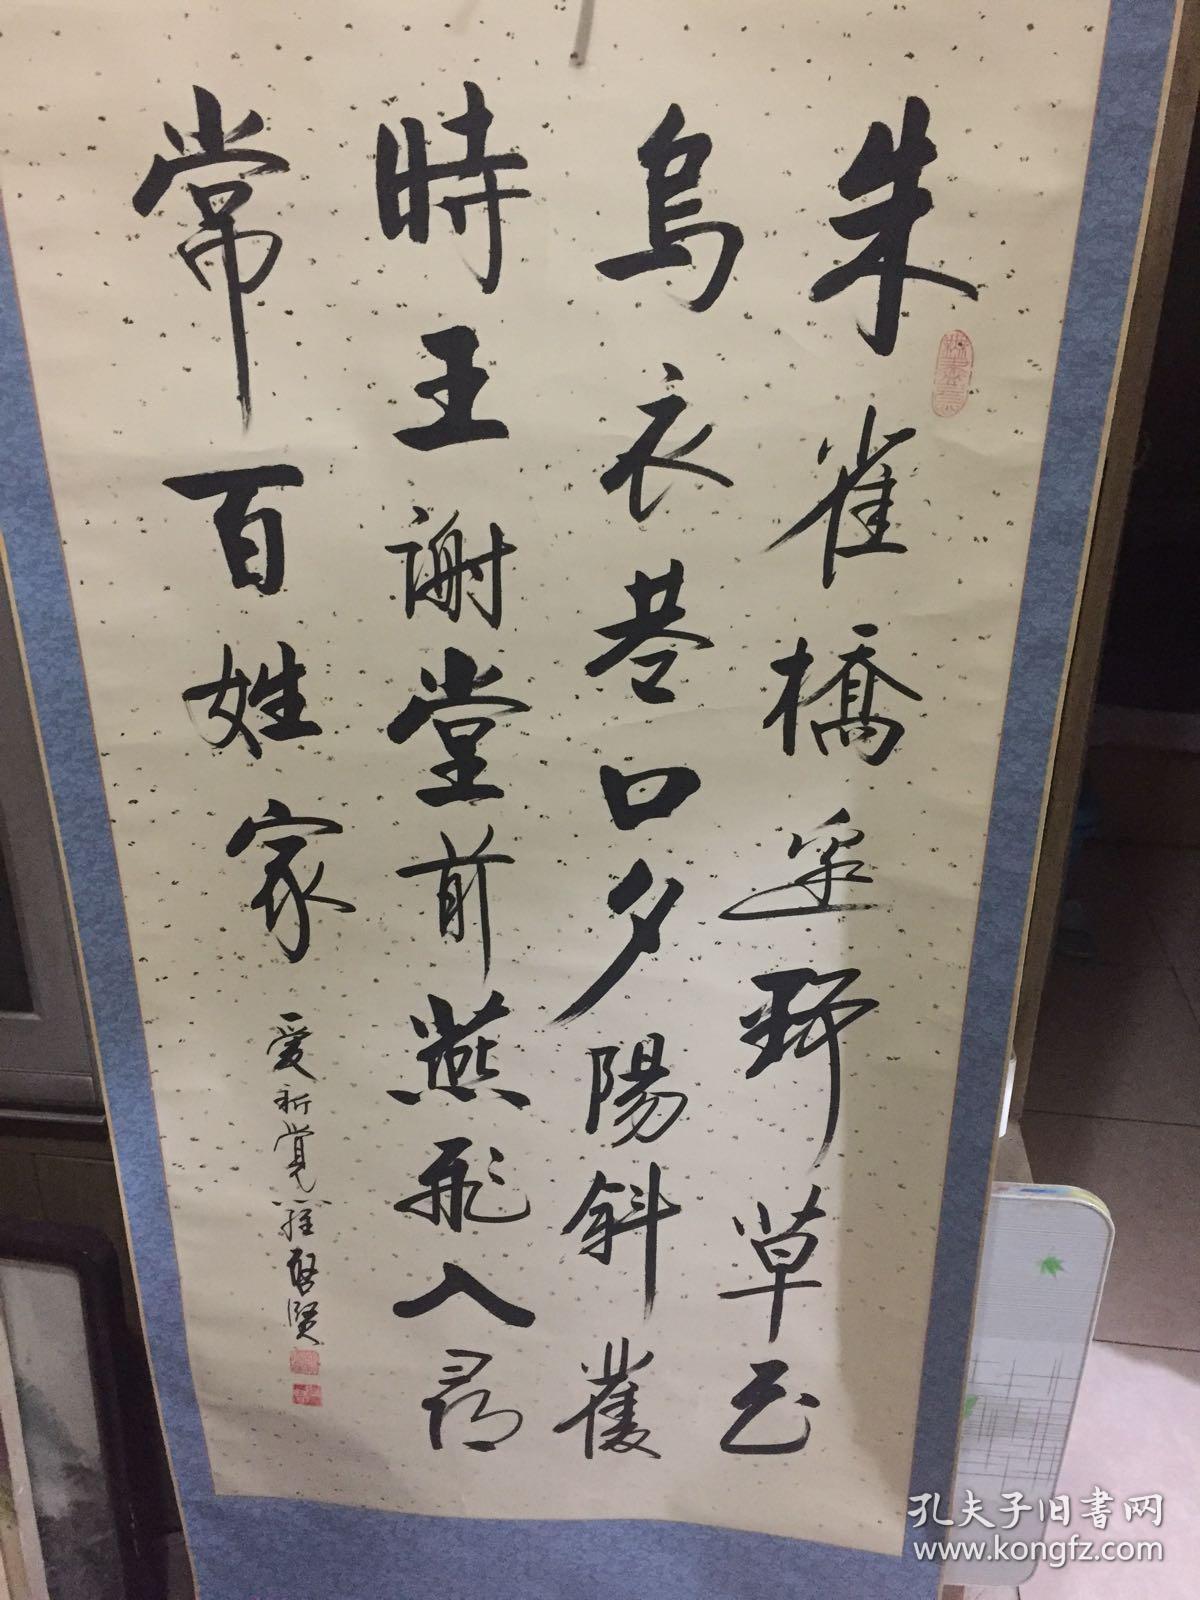 朱雀橋邊野草花
烏衣巷口夕陽斜舊
時王謝堂前燕飛入尋
常百姓家
愛新覺羅啓賢
孔夫子旧书网
www.kongfz.com